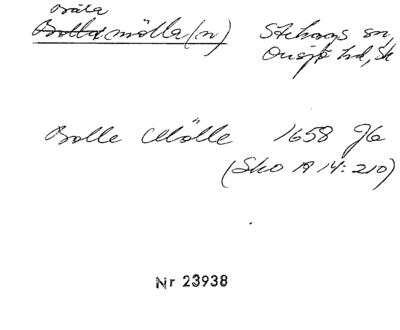 Bråta
Bolle mölla(n) Stehags sn,
Onsjö hd, Sk
Bolle Mölle 1658 Jb
(Sko 19 14: 210)
Nr 23938